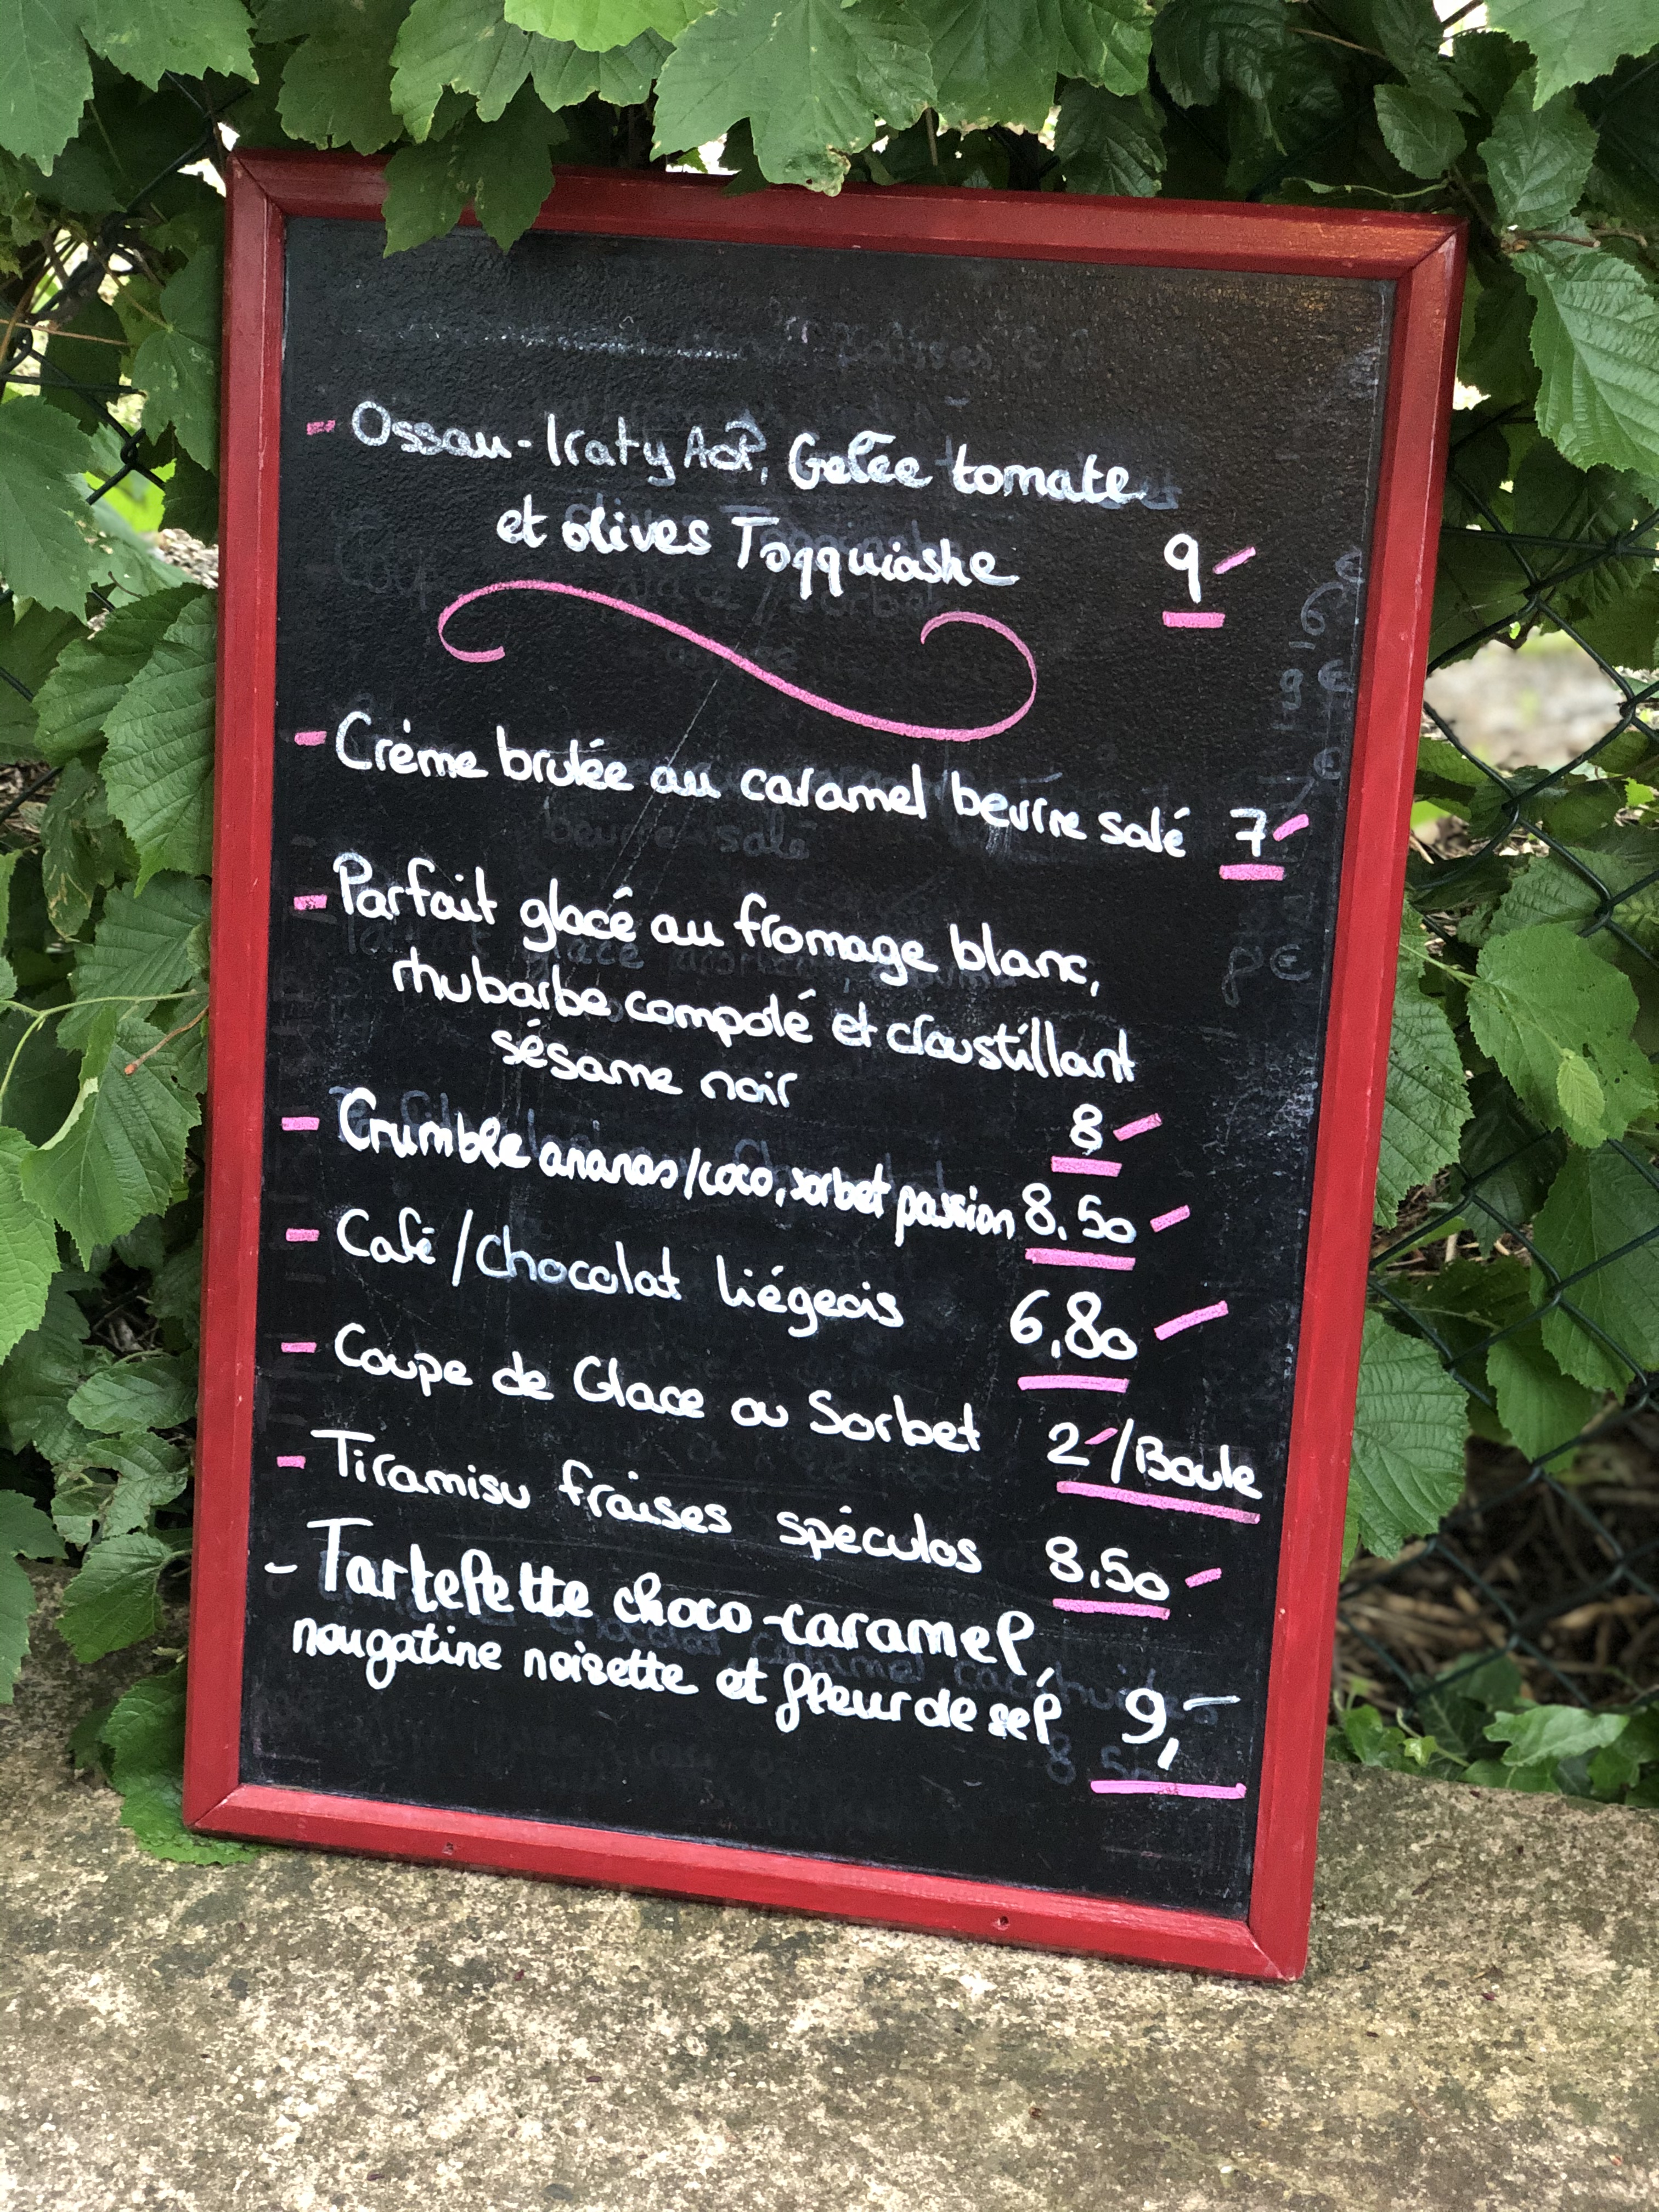 - Ossau-Iraty AOP, Gelée tomate
et olives Tagguiashe
9-
- Crème brulée au caramel beurre salé 7-
- Parfait glacé au fromage blanc,
rhubarbe compoté et croustillant
sésame noir
8-
- Crumble ananas/coco, sorbet passion 8,50-
- Café/Chocolat liégeois 6,80-
- Coupe de Glace ou Sorbet 2-/Boule
- Tiramisu fraises spéculos 8,50-
- Tartelette choco-caramel,
nougatine noisette et fleur de sel 9,-